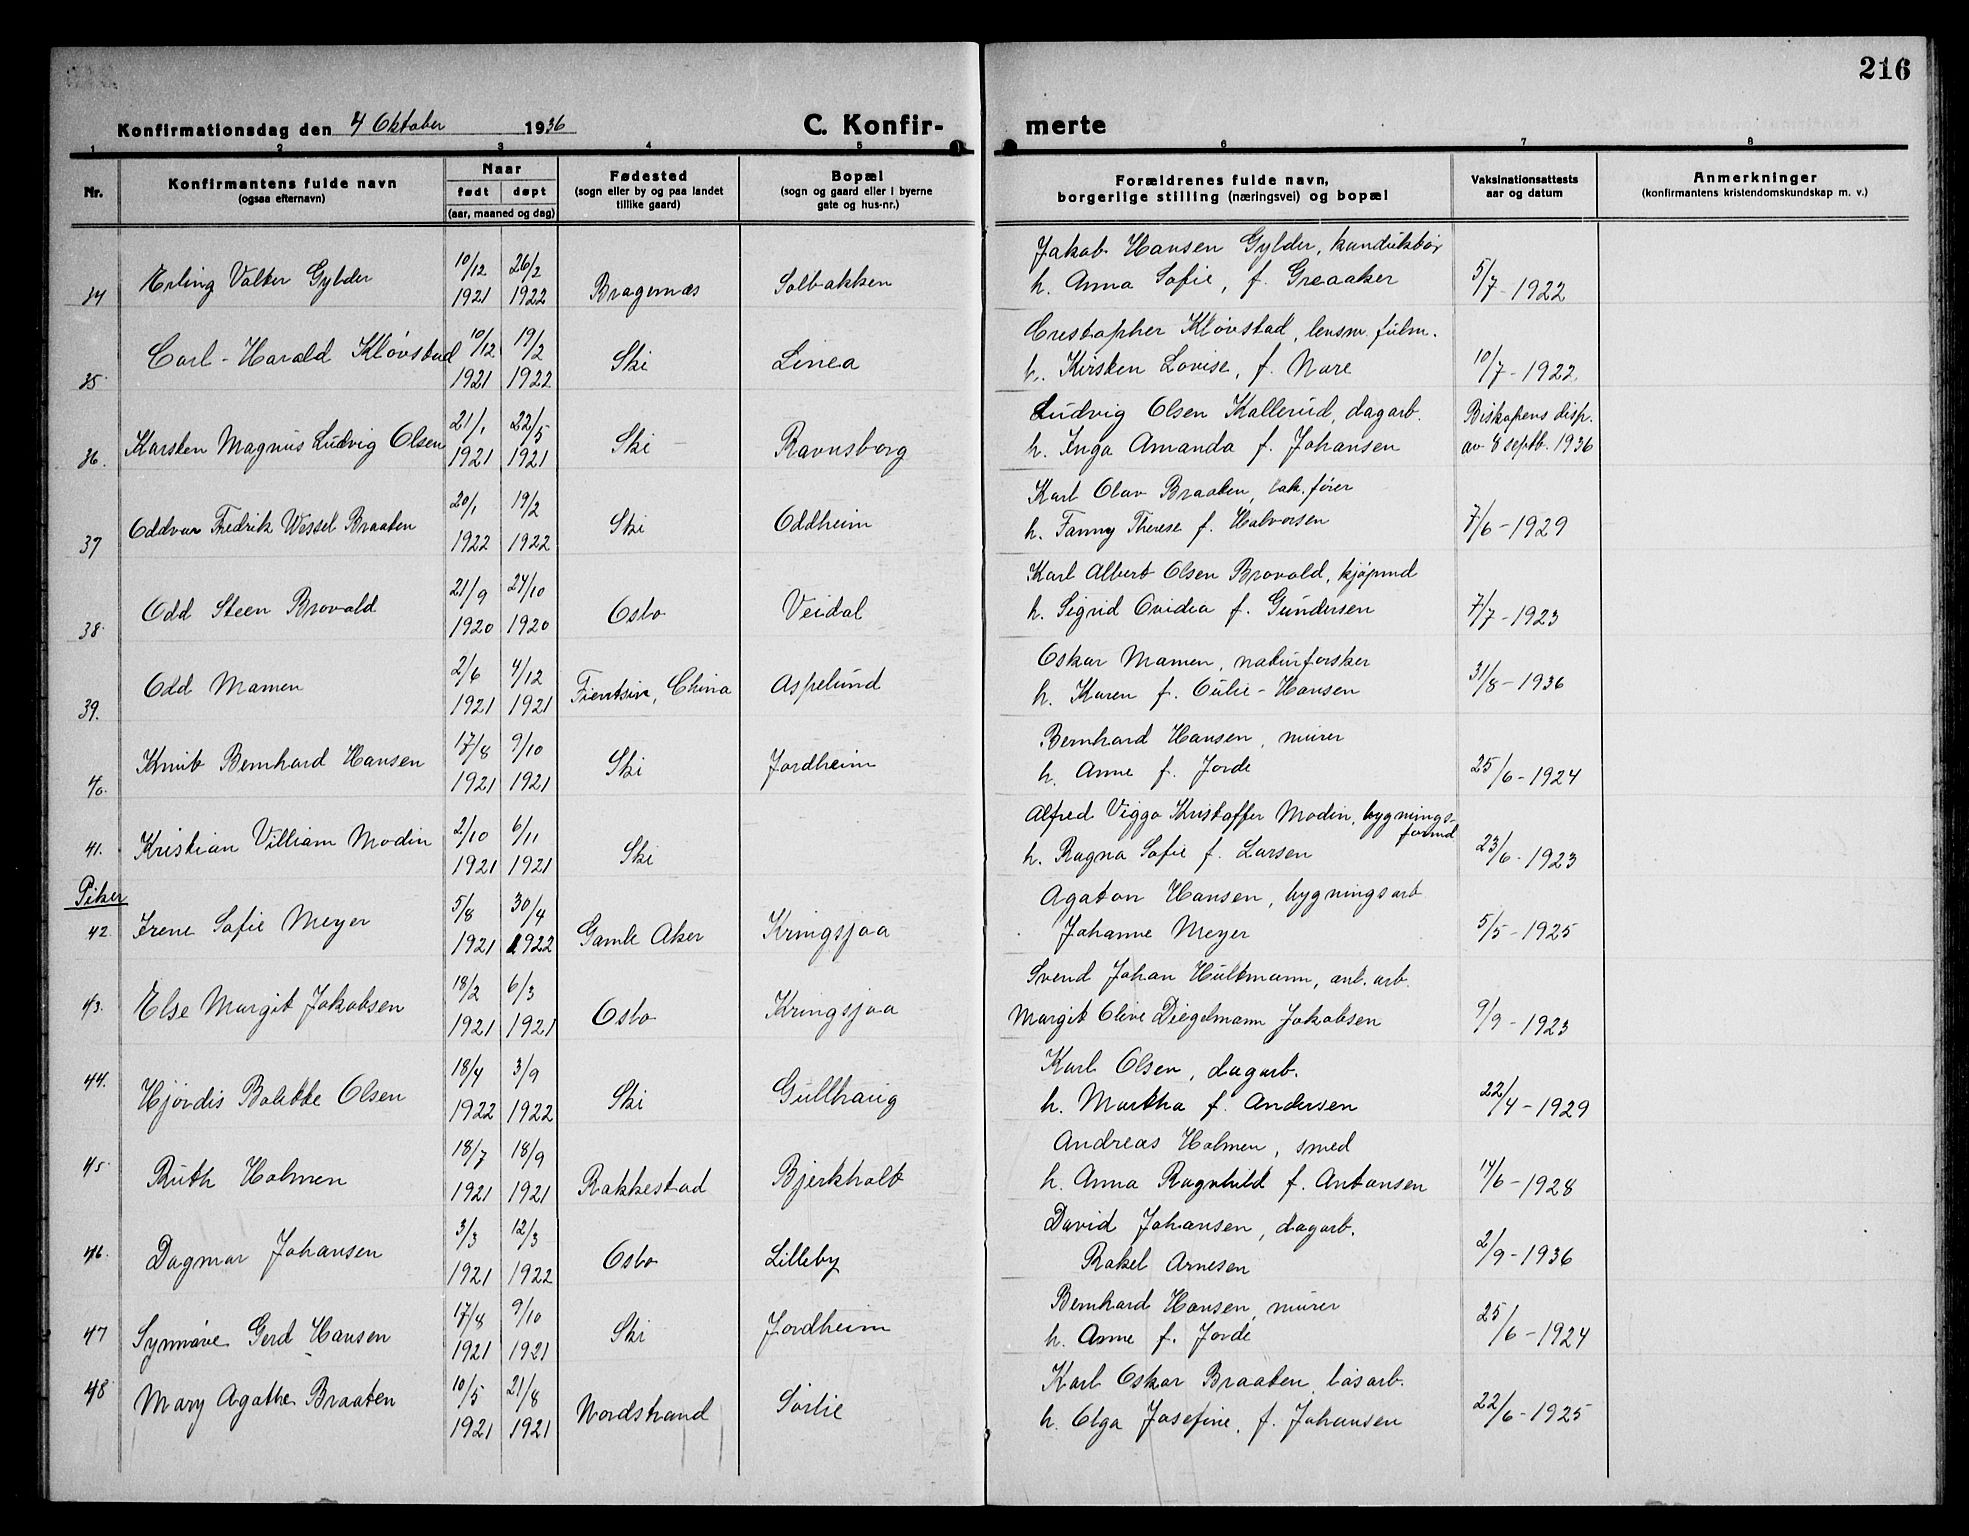 216
Konfirmationsdag den 4 Oktober 1936 C. Konfir- merte
1 2 3 4 5 6 7 8
Nr. Konfirmantens fulde navn (ogsaa efternavn) Naar født døpt (aar, maaned og dag) Fødested (sogn eller by og paa landet tillike gaard) Bopæl (sogn og gaard eller i byerne gate og hus-nr.) Forældrenes fulde navn, borgerlige stilling (næringsvei) og bopæl Vaksinationsattests aar og datum Anmerkninger (konfirmantens kristendomskundskap m. v.)
10/12 26/2 Jakob Hansen Gylder, konduktør
34 Erling Valter Gylder 1921 1922 Bragernæs Solbakken h. Anna Sofie, f. Greaaker 5/7-1922
10/12 19/2 Crestopher Kløvstad, lensm. fulm.
35. Carl-Harald Kløvstad 1921 1922 Ski Linea h. Kirsten Lovise, f. Nare 10/7-1922.
21/1 22/5 Ludvig Olsen Kallerud, dagarb. Biskopens disp.
36. Karsten Magnus Ludvig Olsen 1921 1921 Ski Ravnsborg h. Inga Amanda f. Johansen av 8 septb. 1936
20/1 19/2 Karl Olav Braaten, lok. fører
37 Oddvar Fredrik Wessel Braaten 1922 1922 Ski Oddheim h. Fanny Therese f. Halvorsen 7/6-1929
21/9 24/10 Karl Albert Olsen Brovold, kjøpmd
38. Odd Steen Brovold 1920 1920 Oslo Veidal h. Sigrid Ovidia f. Gundersen 7/7-1923
2/6 4/12 Oskar Mamen, naturforsker
39. Odd Mamen 1921 1921 Tientsin, China Aspelund h. Karen f. Oulie-Hansen 31/8-1936
17/8 9/10 Bernhard Hansen, murer
40. Knut Bernhard Hansen 1921 1921 Ski Jordheim h. Anne f. Jorde 25/6-1924
2/10 6/11 Alfred Viggo Kristoffer Modin, bygnings-
formd
41. Kristian Villiam Modin 1921 1921 Ski h. Ragna Sofie f. Larsen 23/6-1923
Piker
5/8 30/4 Agaton Hansen, bygningsarb
42 Irene Sofie Meyer 1921 1922 Gamle Aker Kringsjaa Johanne Meyer 5/5-1925
18/2 6/3 Svend Johan Hultmann, anl. arb.
43. Else Margit Jakobsen 1921 1921 Oslo Kringsjaa Margit Olive Diegelmann Jakobsen 9/9-1923
18/4 3/9 Karl Olsen, dagarb.
44. Hjørdis Bolette Olsen 1922 1922 Ski Gullhaug h. Martha f. Andersen 22/4-1929
18/7 18/9 Andreas Holmen, smed
45. Ruth Holmen 1921 1921 Rakkestad Bjerkholt h. Anna Ragnhild f. Antonsen 14/6-1928
3/3 12/3 David Johansen, dagarb.
46. Dagmar Johansen 1921 1922 Oslo Lilleby Rakel Arnesen 2/9-1936
17/8 9/10 Bernhard Hansen, murer
47 Synnøve Gerd Hansen 1921 1921 Ski Jordheim h. Anne f. Jorde 25/6-1924
10/5 21/8 Karl Oskar Braaten, løsarb.
48 Mary Agathe Braaten 1921 1921 Nordstrand Sørlie h. Olga Josefine, f. Johansen 22/6-1925